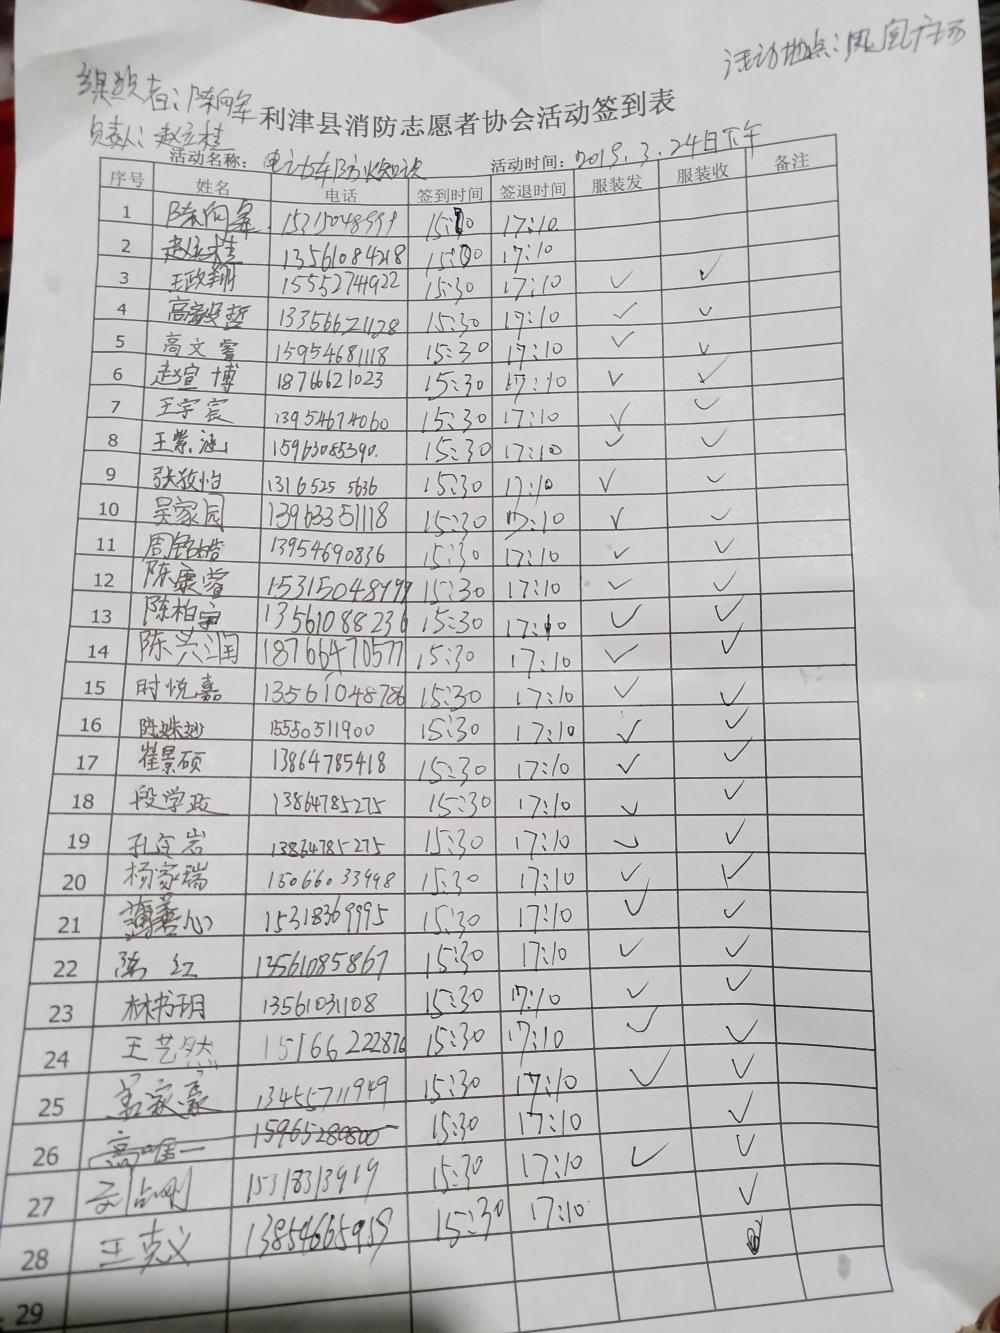 活动地点:凤凰广场
组织者:陈向军
利津县消防志愿者协会活动签到表
负责人:赵立桂
活动名称: 电动车防火知识 活动时间: 2019.3.24日下午
序号 姓名 电话 签到时间 签退时间 服装发 服装收 备注
1 陈向军 15315048999 15:10 17:10
2 赵立桂 13561084218 15:00 17:10
3 王政翔 1555274922 15:30 17:10 ✓ ✓
4 高 哲 13356621128 15:30 17:10 ✓ ✓
5 高文 15954681118 15:30 17:10 ✓ ✓
6 赵宣博 18766621023 15:30 17:10 ✓ ✓
7 王宇宸 13954674060 15:30 17:10 ✓ ✓
8 王紫涵 15963085390. 15:30 17:10 ✓ ✓
9 张敬怡 1316525 5636 15:30 17:10 ✓ ✓
10 吴家园 13963351118 15:30 17:10 ✓ ✓
11 周铭皓 13954690836 15:30 17:10 ✓ ✓
12 陈康睿 15315048999 15:30 17:10 ✓ ✓
13 陈柏宇 13561088236 15:30 17:10 ✓ ✓
14 陈兴润 18766470577 15:30 17:10 ✓ ✓
15 时悦嘉 13561048786 15:30 17:10 ✓ ✓
16 陈姝妙 15550511900 15:30 17:10 ✓ ✓
17 崔景硕 13864785418 15:30 17:10 ✓ ✓
18 段学政 13864785275 15:30 17:10 ✓ ✓
19 孔 岩 13864785275 15:30 17:10 ✓ ✓
20 杨家瑞 15066033998 15:30 17:10 ✓ ✓
21 心 15318369995 15:30 17:10 ✓ ✓
22 陈红 13561085867 15:30 17:10 ✓ ✓
23 林书玥 13561031108 15:30 17:10 ✓ ✓
24 王艺然 15166222876 15:30 17:10 ✓ ✓
25 家豪 13455711949 15:30 17:10 ✓ ✓
26 高唯一 15965280800 15:30 17:10 ✓
27 占刚 15318313919 15:30 17:10 ✓ ✓
28 王克义 13854665959 15:30 17:10 ✓
29